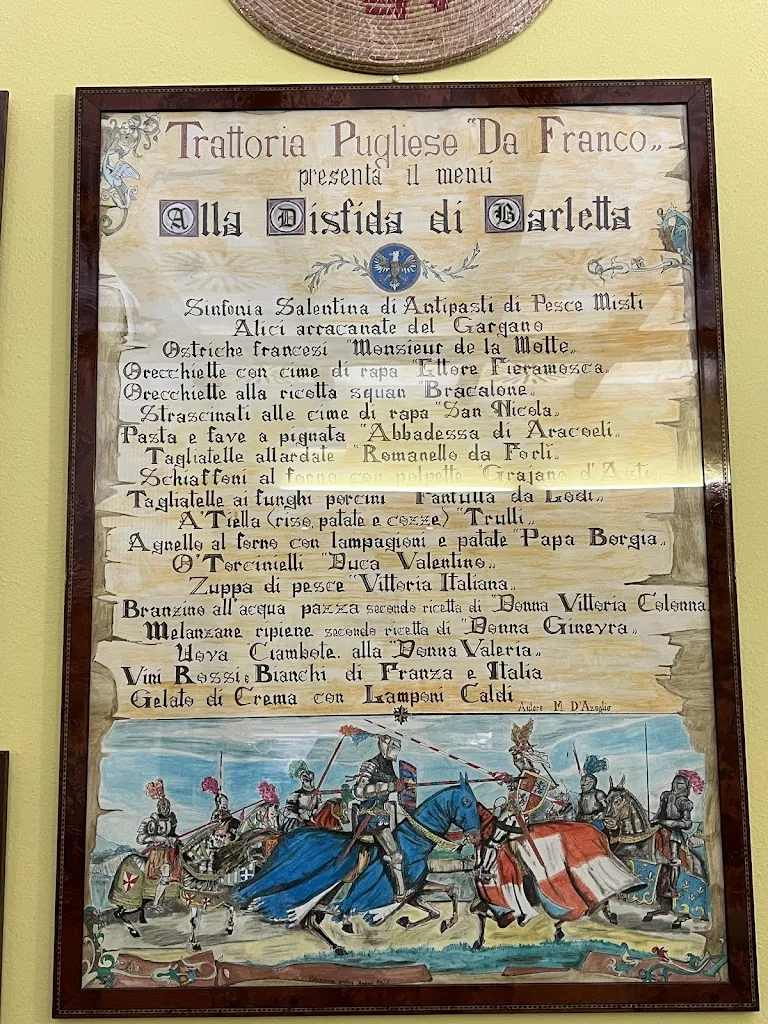 Trattoria Pugliese "Da Franco„
presenta il menú
Alla Disfida di Barletta
Sinfonia Salentina di Antipasti di Pesce Misti
Alici arracanate del Gargano
Ostriche francesi "Monsieur de la Motte„
Orecchiette con cime di rapa "Ettore Fieramosca„
Orecchiette alla ricotta squan "Bracalone„
Strascinati alle cime di rapa "San Nicola„
Pasta e fave a pignata "Abbadessa di Aracoeli„
Tagliatelle allardate "Romanello da Forlì„
Schiaffoni al forno con polpette "Grajano d'Asti
Tagliatelle ai funghi porcini "Fanfulla da Lodi„
A'Tiella (riso, patate e cozze) "Trulli„
Agnello al forno con lampagioni e patate "Papa Borgia„
O'Torcinielli "Duca Valentino„
Zuppa di pesce "Vittoria Italiana„
Branzino all'acqua pazza secondo ricetta di "Donna Vittoria Colonna
Melanzane ripiene secondo ricetta di "Donna Ginevra„
Uova Ciambole. alla "Donna Valeria„
Vini Rossi e Bianchi di Franza e Italia
Gelato di Crema con Lamponi Caldi
Autore M. D'Azeglio